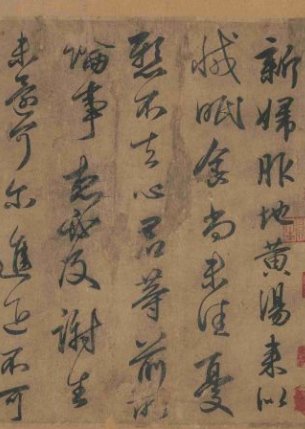 新婦服地黃湯來似
減眠食尚未佳憂
懸不去心君等前所
論事想必及謝生
未還可爾進退不可